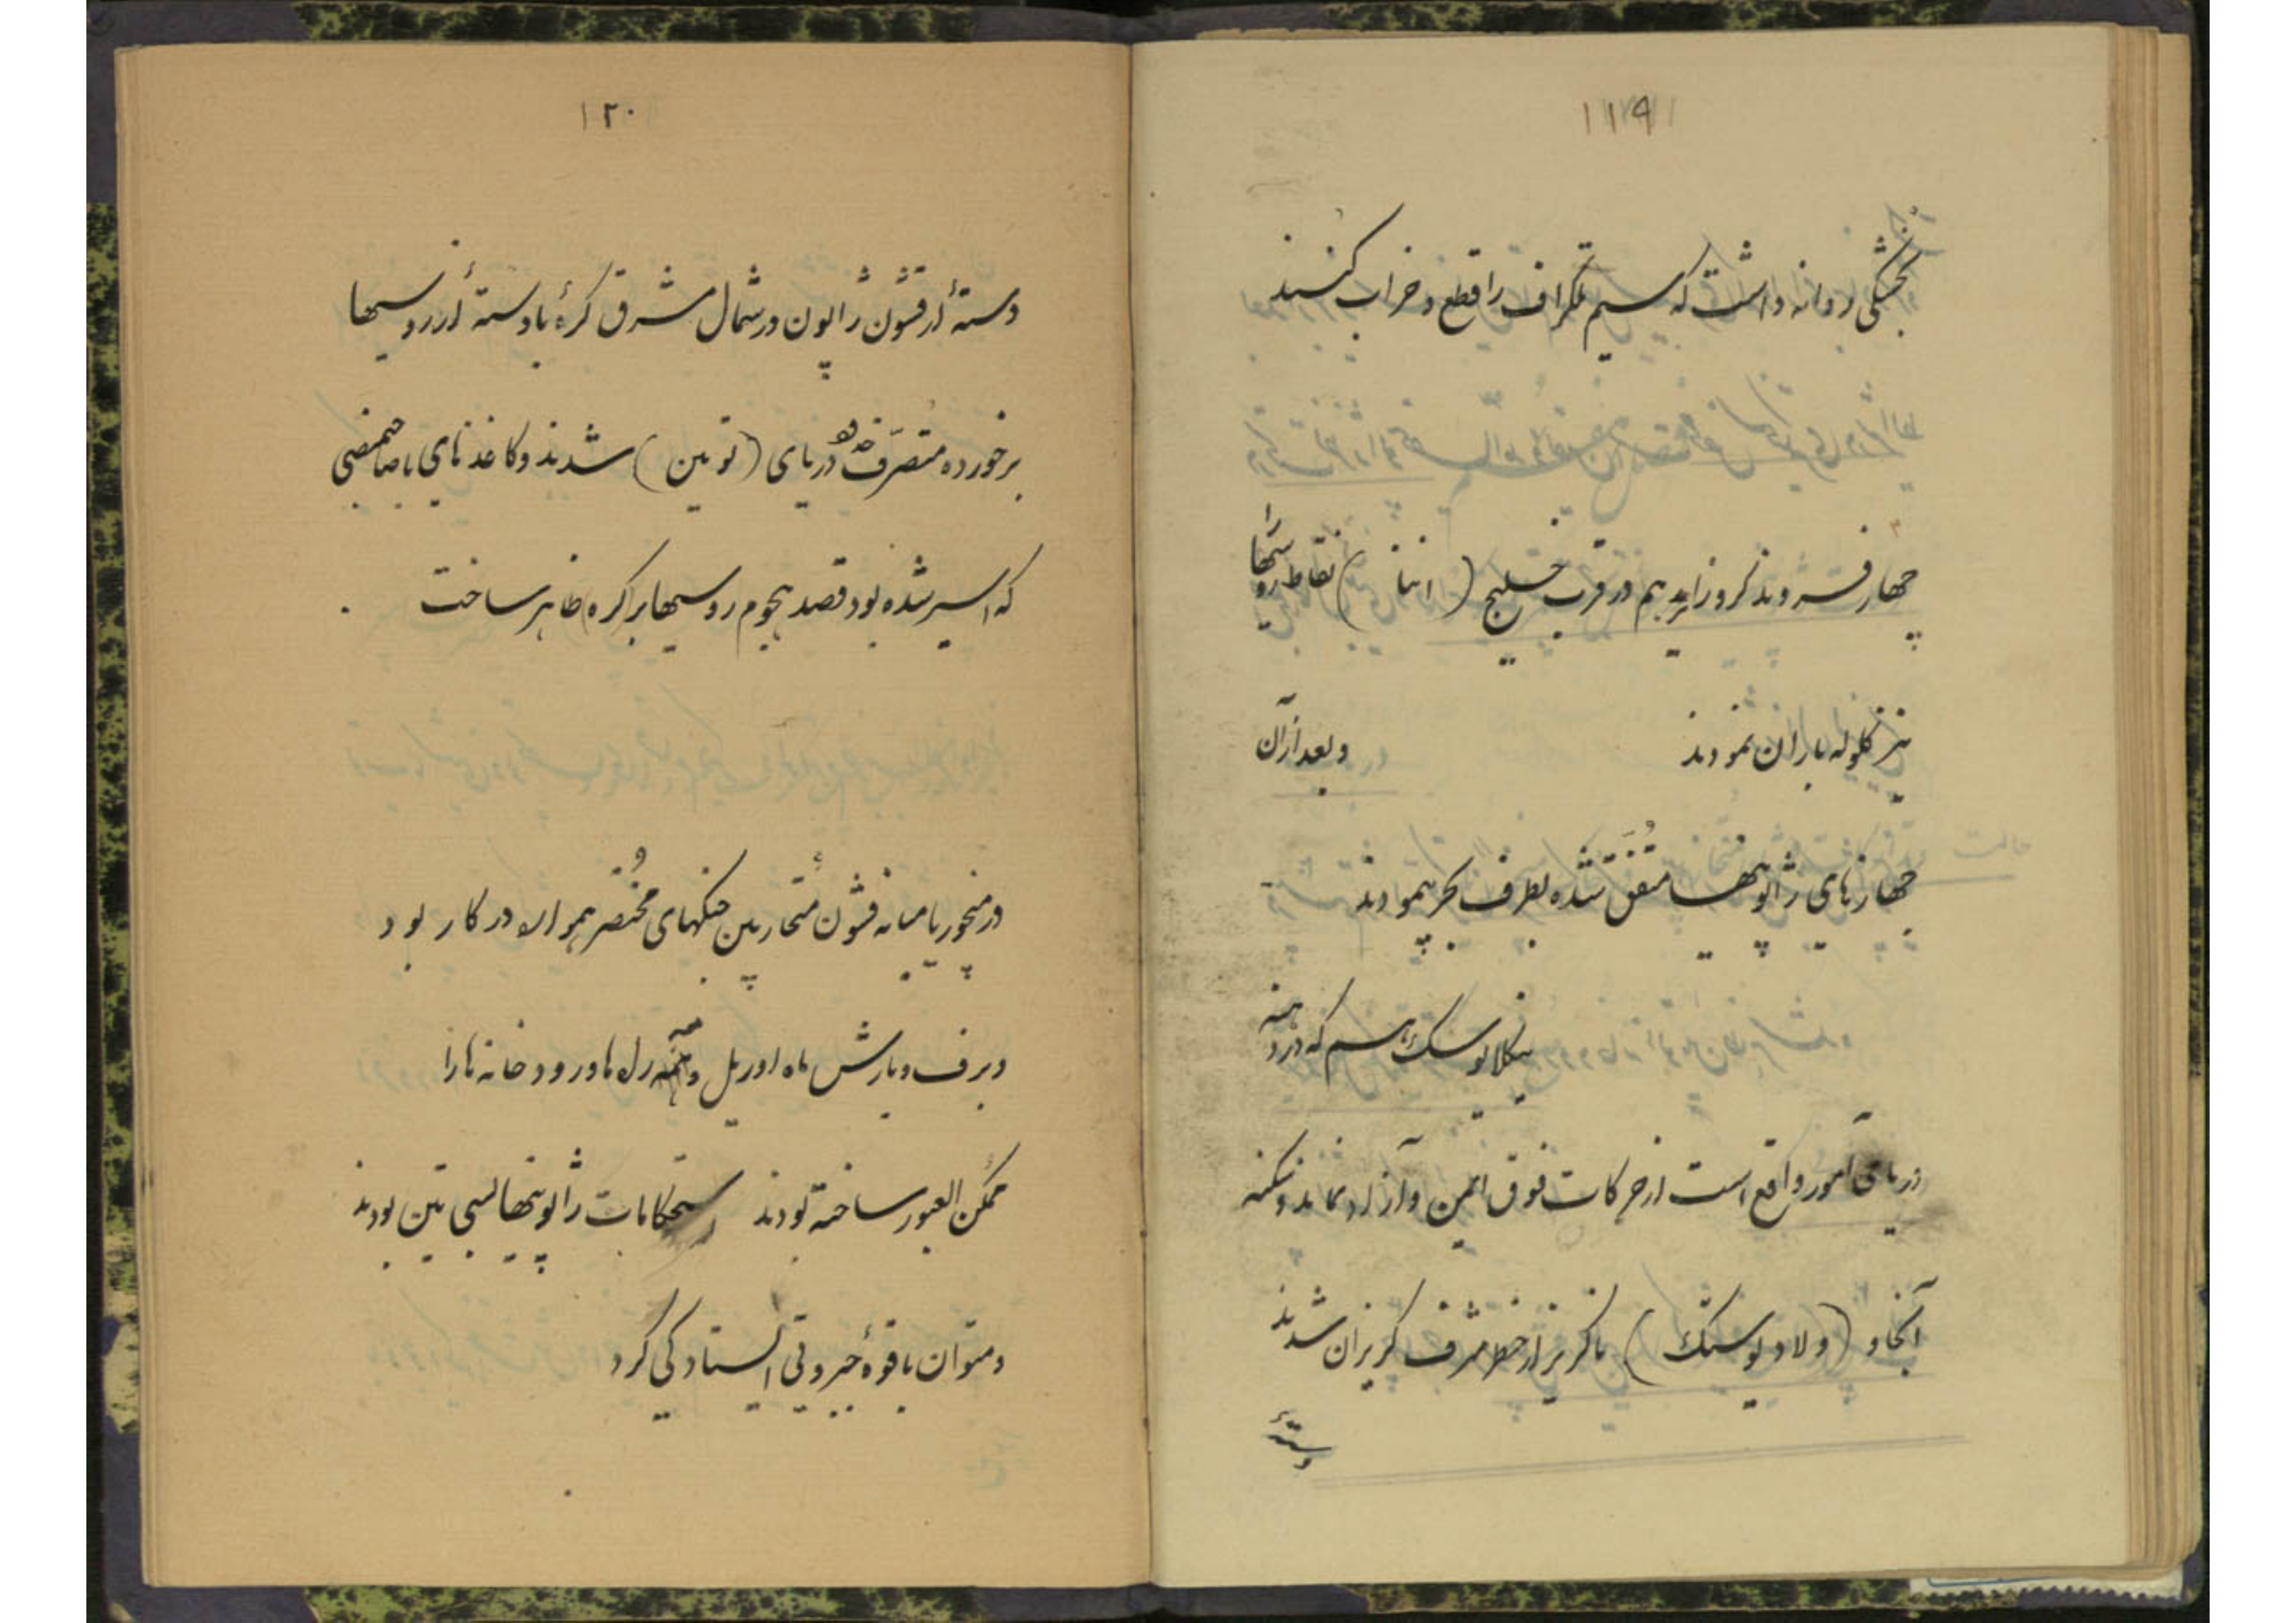 ۱۱۹
بخشکی روانه داشت که سیم تلگراف را قطع و خراب کنند
چهار فروند کروزایر هم در قرب خلیج ( انتا ) نقاط روسها را
نیز گلوله باران نمودند و بعد از آن
جهازهای ژاپونیها متفق شده بطرف بحر پیمودند
نیکلایوسک هم که در دهنه
دریای آمور واقع است از حرکات فوق ایمن و آزاد نماند و سکنه
آنجا و (ولادیوستک) ناگریز از خطر مشرف گریزان شدند
دستهٔ
۱۲۰
دستهٔ از قشون ژاپون در شمال مشرق کرهٔ با دستهٔ از روسیها
برخورده متصرف دریای (تومین) شدند و کاغذهای صاحبمنصبی
که اسیر شده بود قصد هجوم روسیها بر کره ظاهر ساخت
در منچوریا میانه قشون متحاربین جنگهای مختصر هموار در کار بود
و برف و بارش ماه اوریل و مه راه ها و رودخانه ها را
ممکن العبور ساخته بودند استحکامات ژاپونیها بسی متین بودند
و متوان با قوهٔ جبروتی ایستادگی کرد